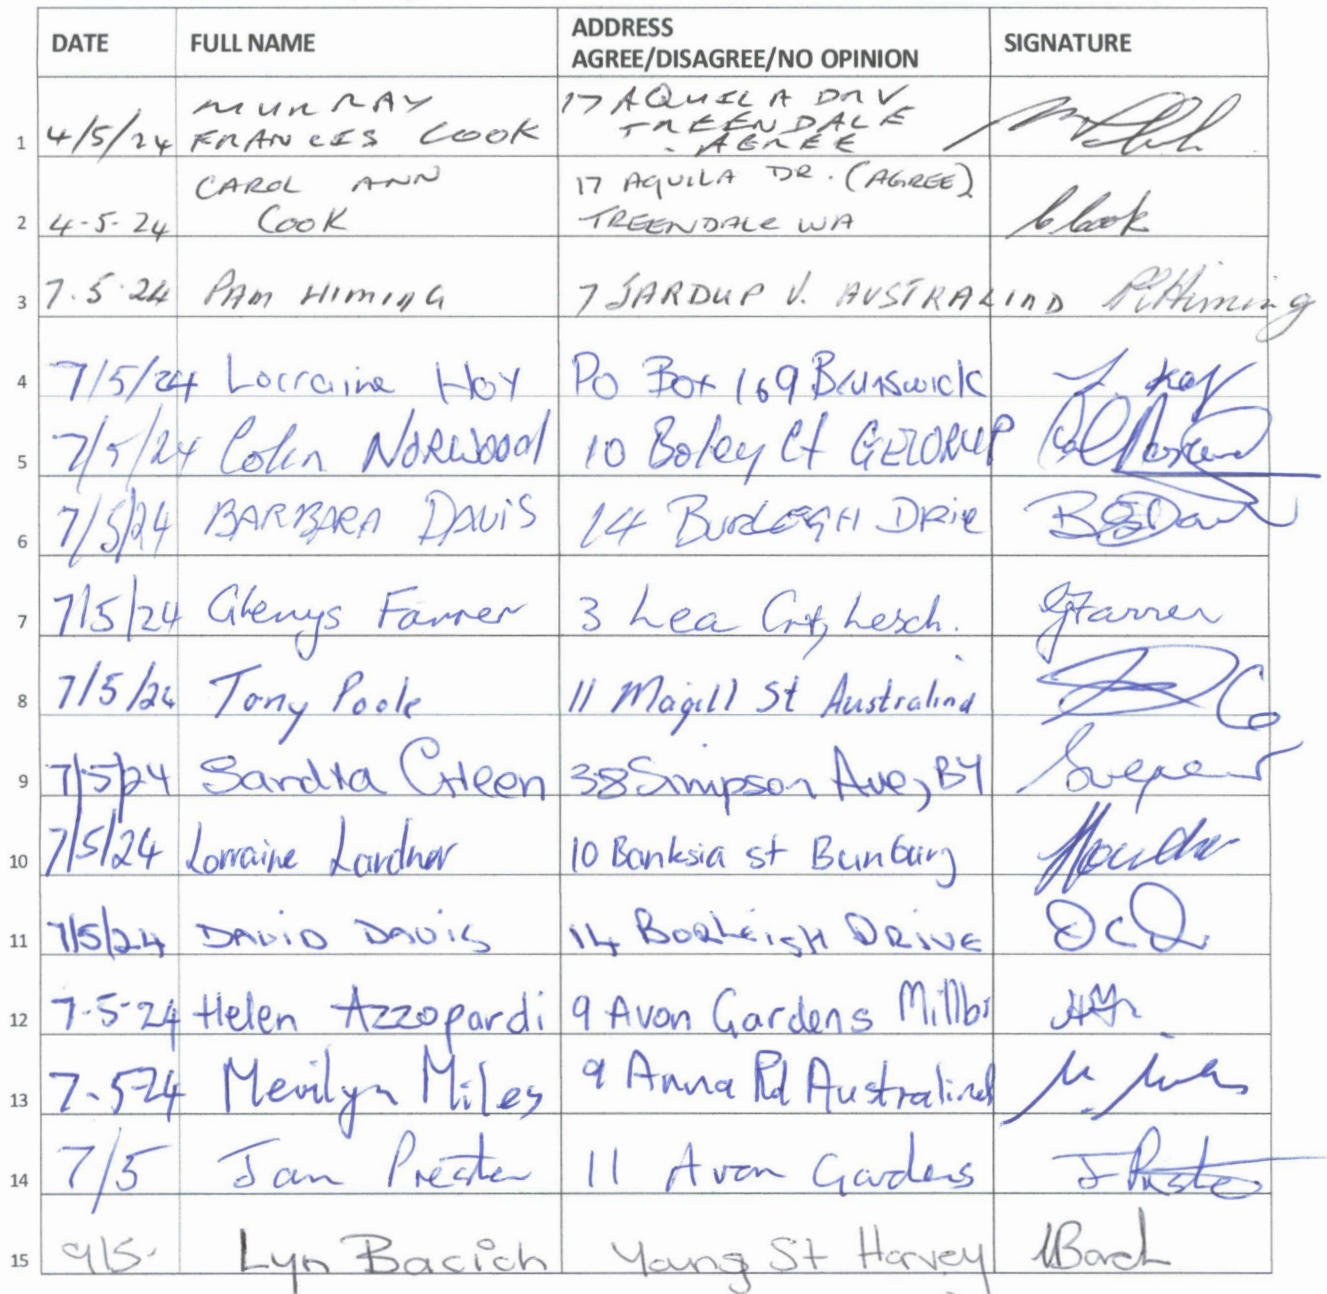 DATE FULL NAME ADDRESS AGREE/DISAGREE/NO OPINION SIGNATURE
1 4/5/24 MURRAY FRANCES COOK 17 AQUILA DRV TREENDALE - AGREE
2 4-5-24 CAROL ANN COOK 17 AQUILA DR. (AGREE) TREENDALE WA C Cook
3 7.5.24 PAM HIMING 7 JARDUP V. AUSTRALIND P Himing
4 7/5/24 Lorraine Hoy Po Box 169 Brunswick L Hoy
5 7/5/24 Colin NORWOOD 10 Boley Ct GELORUP
6 7/5/24 BARBARA DAVIS 14 BURLEIGH DRIVE
7 7/5/24 Glenys Farrer 3 Lea Crt, Lesch. G Farrer
8 7/5/24 Tony Poole 11 Magill St Australind
9 7/5/24 Sandra Green 38 Simpson Ave, BY
10 7/5/24 Lorraine Lardner 10 Banksia st Bunbury
11 7/5/24 DAVID DAVIS 14 BORLEIGH DRIVE
12 7-5-24 Helen Azzopardi 9 Avon Gardens Millbr
13 7-5-24 Merilyn Miles 9 Anna Rd Australind M. Miles
14 7/5 Jan Preston 11 Avon Gardens J Preston
15 9/5. Lyn Bacich Young St Harvey